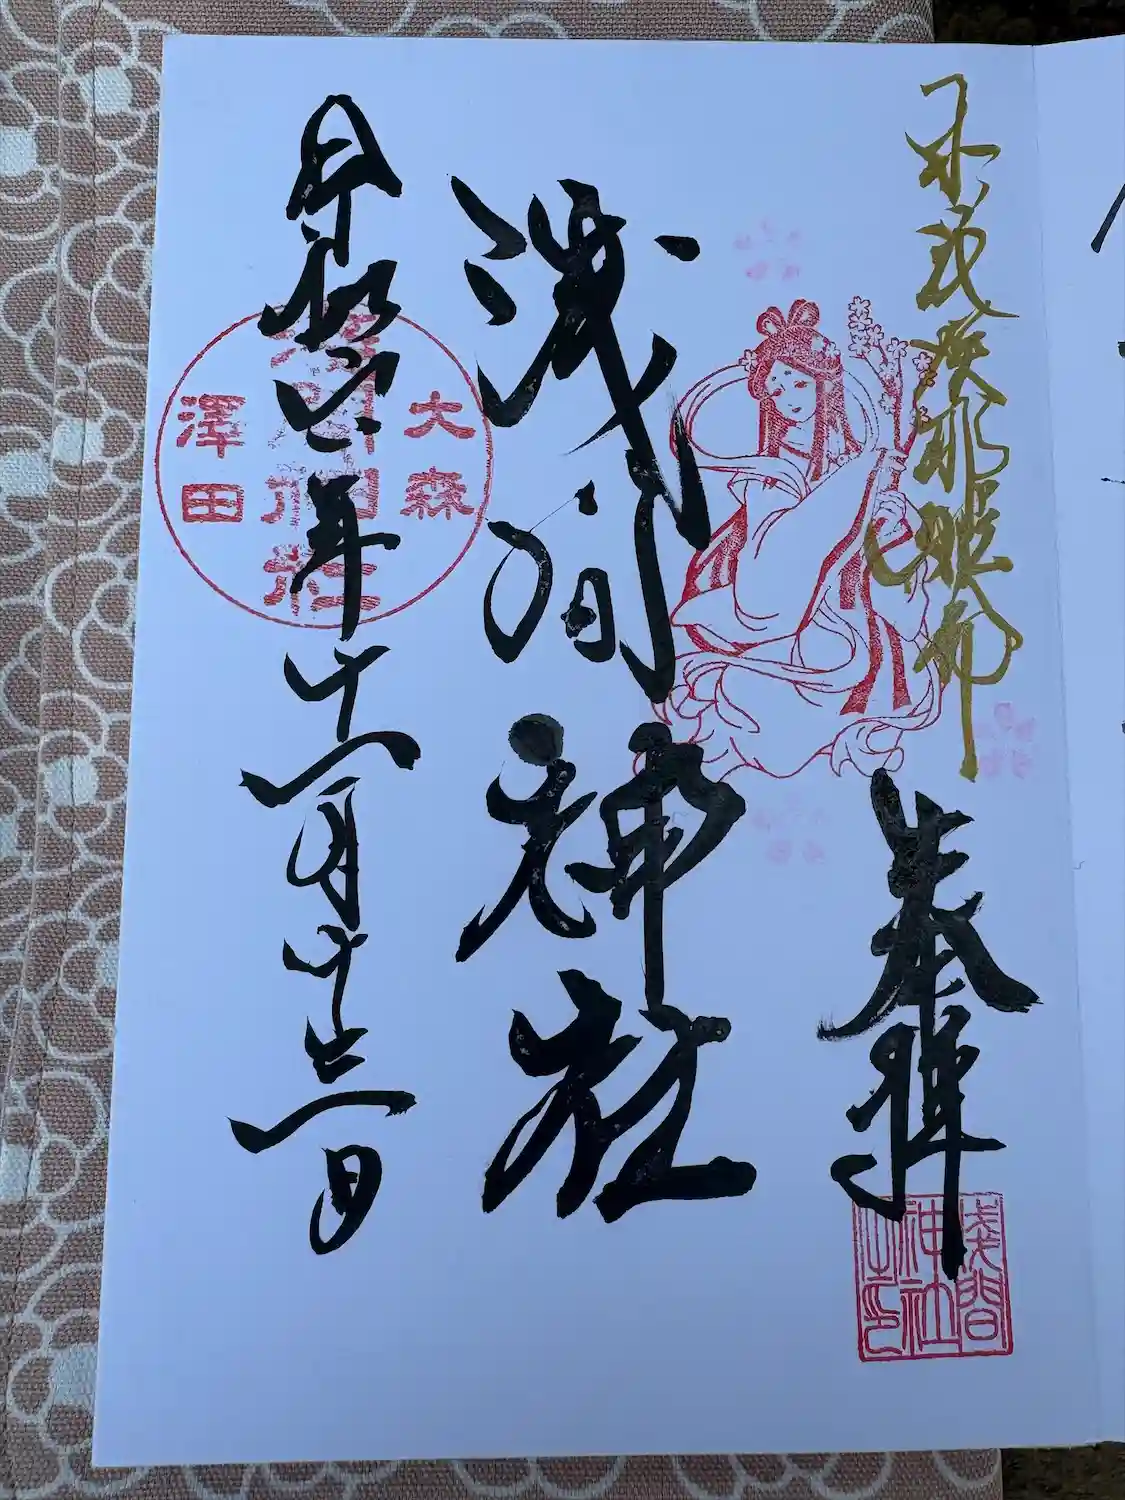 木花咲耶姫命
奉拝
淺間
神社
之印
浅間神社
令和六年十一月十三日
大森
淺間神社
澤田